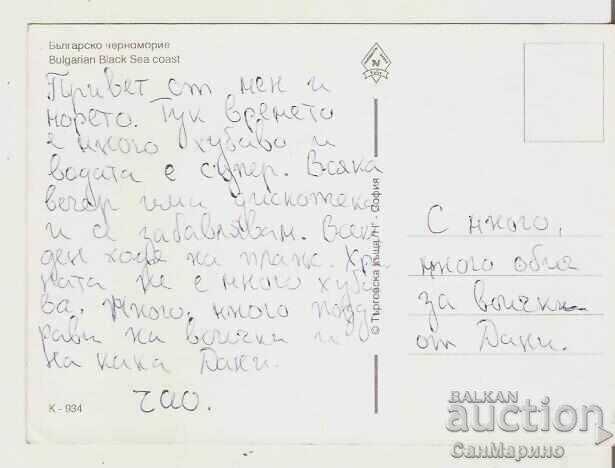 Българско черноморие
Bulgarian Black Sea coast
Привет от мен и
морето. Тук времето
е много хубаво и
водата е супер. Всяка
вечер има дискотека
и се забавлявам. Всеки
ден ходя на плаж. Хра
ната не е много хуба
ва. Много, много позд
рави на всички и
на кака Дани.
чао.
К - 934
© Търговска къща "Н" - София
С много,
много обич
за всички
от Дани.
BALKAN
auction
СанМарино